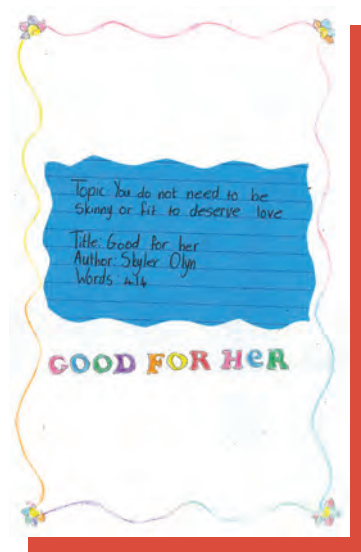 Topic: You do not need to be
skinny or fit to deserve love
Title: Good for her
Author: Skyler Olyn
Words: 414
GOOD FOR HER